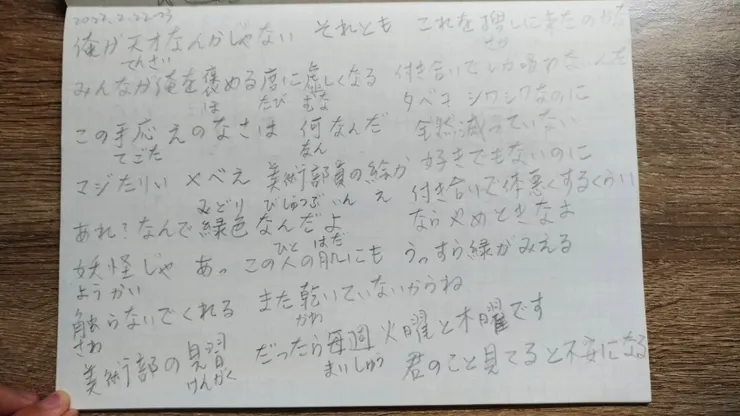 2022.2.22-23
俺が天才なんかじゃない それとも これを捜しに来たのかな
てんさい さが
みんなが俺を褒める度に虚しくなる 付き合いでしか吸わないんだ
ほ たび むな タバコ シワシワなのに
この手応えのなさは 何なんだ 全然減っていない
てごた なん 好きでもないのに
マジたりい ×べえ 美術部員の絵か 付き合いで体悪くするくらい
みどり びじゅつぶいん え
あれ?なんで緑色なんだよ ならやめときなよ
ひと はだ
妖怪じゃ あっ この人の肌にも うっすら緑がみえる
ようかい
触らないでくれる まだ乾いていないからね
さわ かわ
美術部の見習 だったら毎週 火曜と木曜です
けんがく まいしゅう 君のこと見てると不安になる